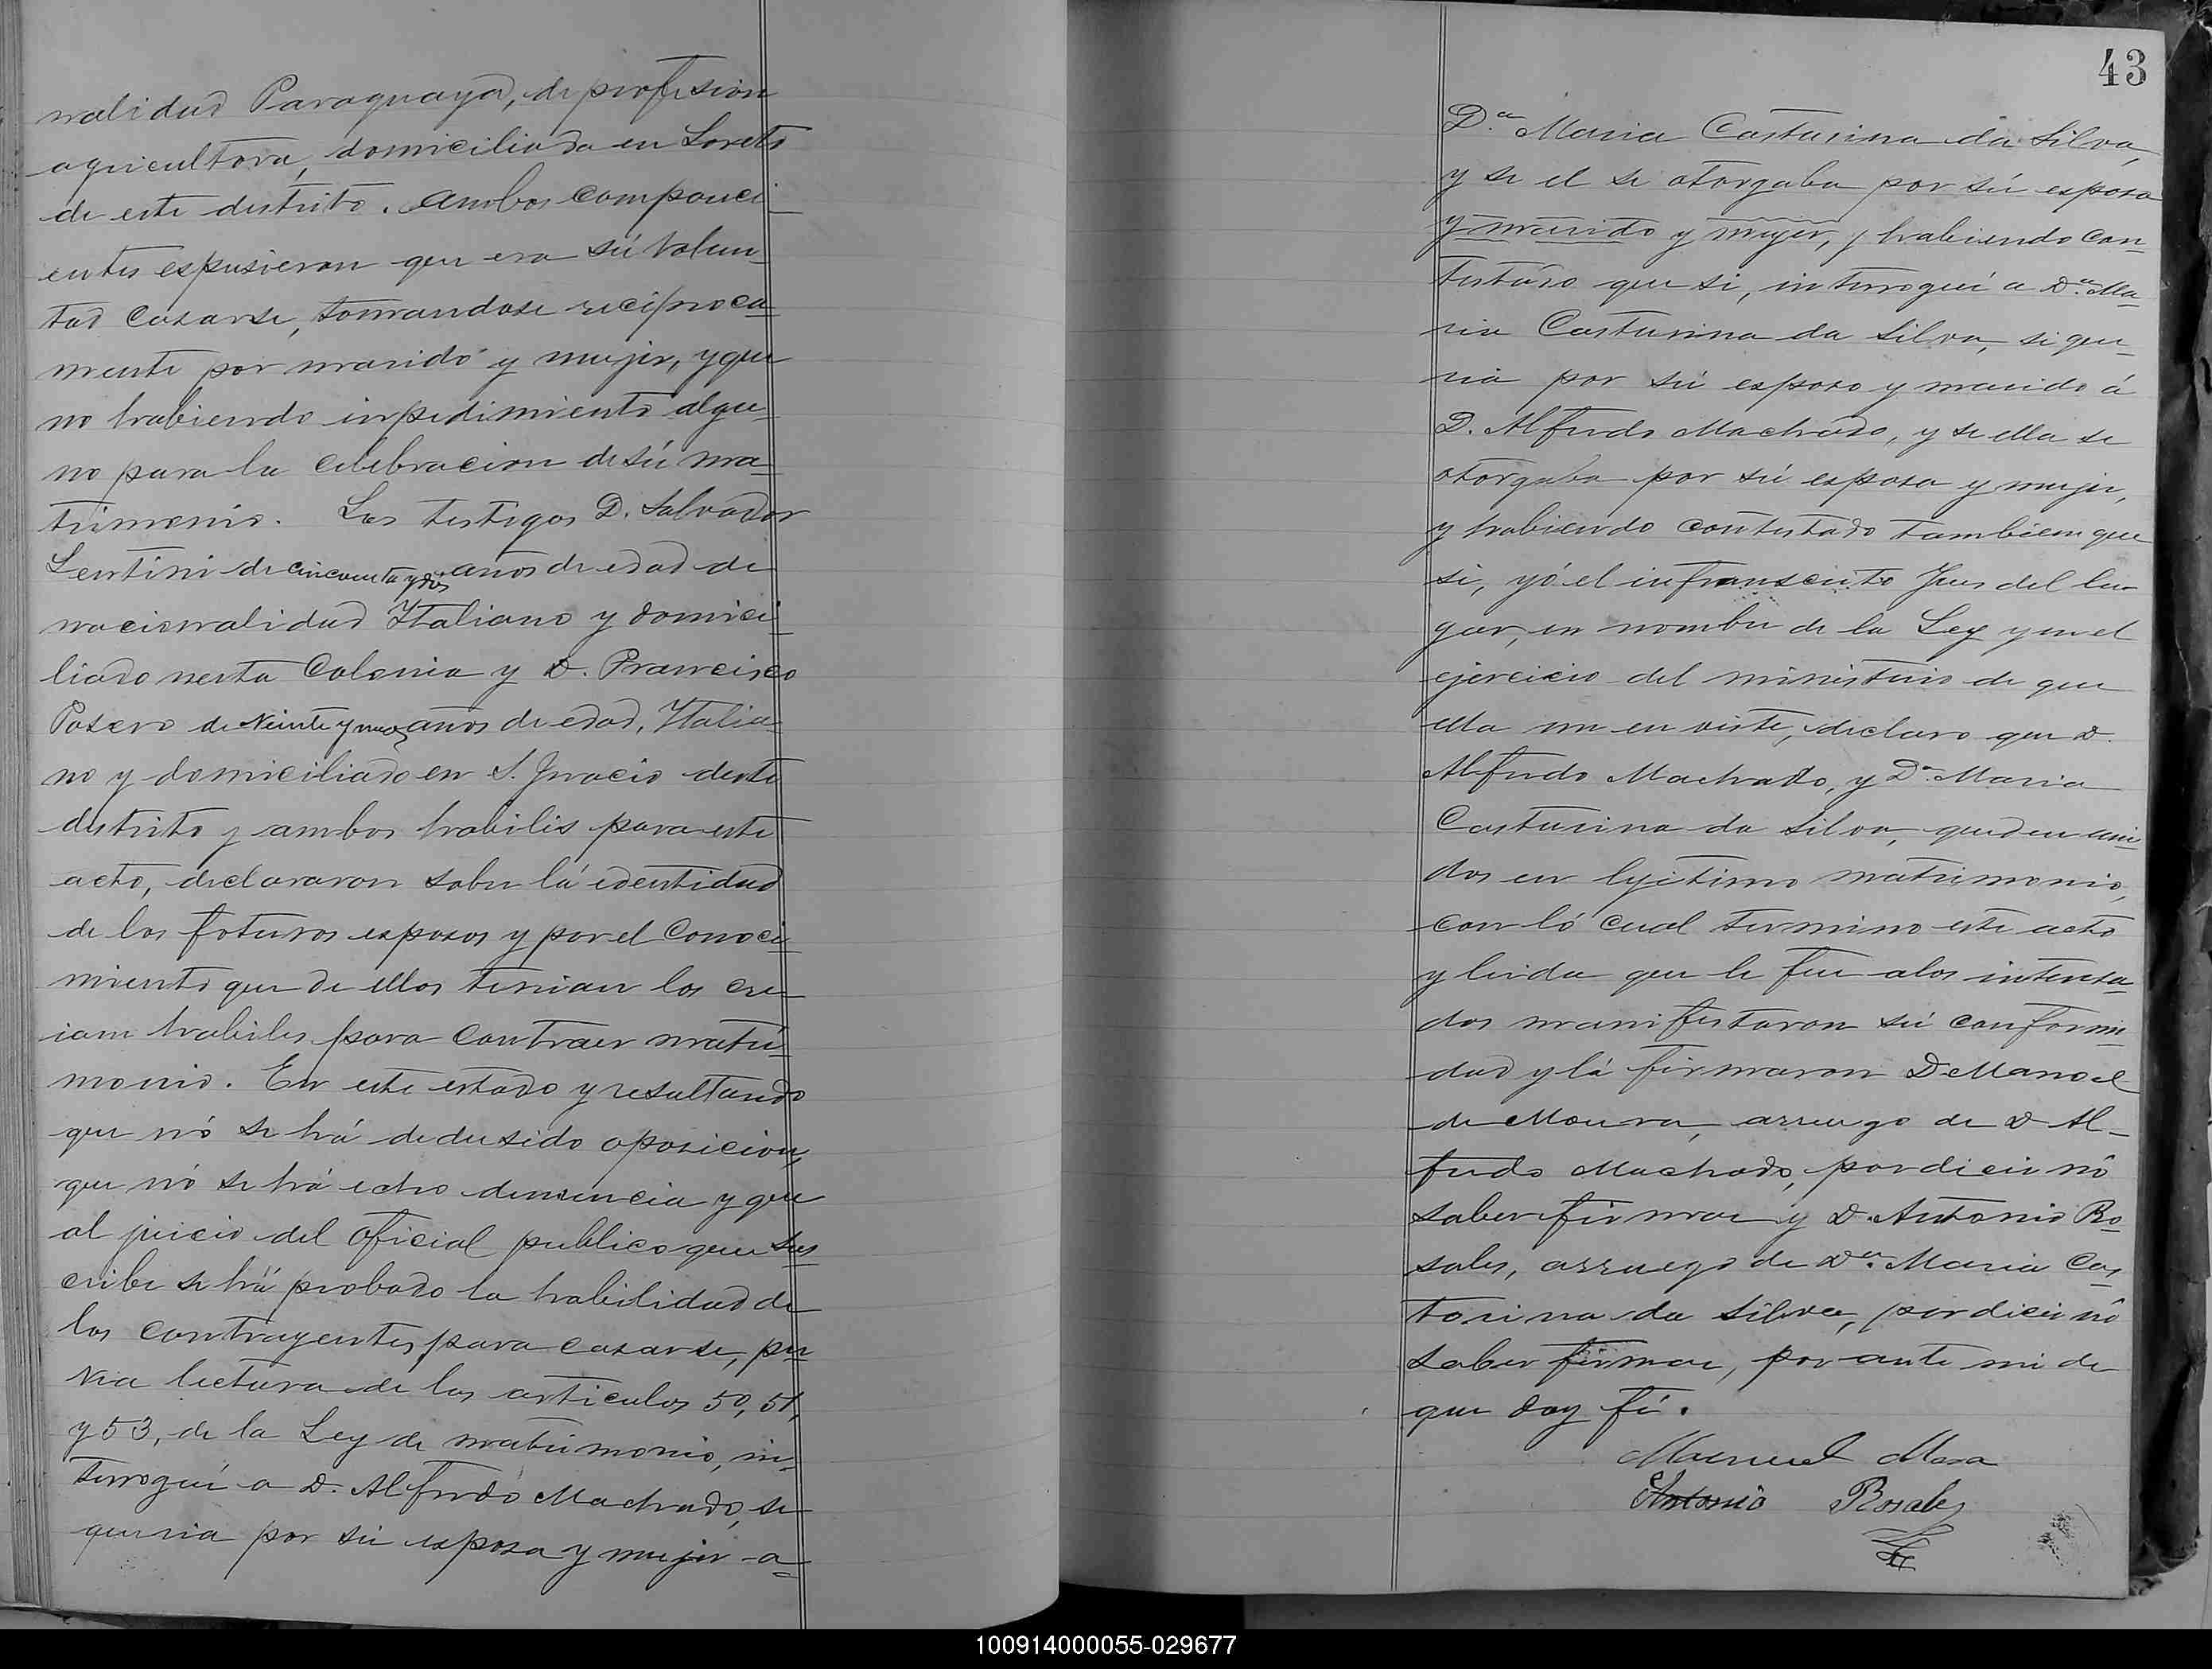 nalidad Paraguaya, de profesion
agricultora, domiciliada en Loreto
de este destrito. Ambos compareci_
entes espusieron que era sú volun_
tad casarse, tomandose reciproca_
mente por marido y mujer, y que
no habiendo inpedimiento algu_
no para la celebracion de sú ma_
trimonio. Los testigos D. Salvador
Lentini de cincuenta y dos años de edad de
nacionalidad Italiano y domici_
liado nesta Colonia y D. Francisco
Posero de veinte y nueve años de edad, Italia_
no y domiciliado en S. Ignacio deste
destrito y ambos habilis para este
acto, declararon sober lá edentidad
de los foturos esposos y por el conoci_
miento que de ellos tenian los cre_
iam habiles para contraer matri_
monio. En este estado y resultando
que nó se há dedusido oposicion,
que nó se há echo denuncia y que
al juicio del oficial publico que sus_
cribe se há probado la habilidad de
los contrayentes para casarse, pre_
via lectura de los articulos 50, 51,
y 53, de la Ley de matrimonio, in_
terrogué a D. Alfredo Machado, se
queria por sú esposa y mujer a_
43
D.ª Maria Casturina da Silva,
y se el se otorgaba por sú esposo
y marido y mujer, y habiendo con_
testado que si, interrogué a D.ª Ma_
ria Casturina da Silva, si que_
ria por sú esposo y marido á
D. Alfredo Machado, y se ella se
otorgaba por sú esposa y mujer,
y habiendo contestado tambiem que
si, yó el infranscrito Jues del lu_
gar, en nombre de la Ley y en el
ejercicio del ministerio de que
ella me enviste, declaro que D.
Alfredo Machado, y D.ª Maria
Casturina da Silva, queden uni_
dos en lyitimo matrimonio,
con ló cual termino este acto
y leida que le fue a los interesa_
dos manifestaron sú conformi_
dad y lá firmaron D Manoel
de Moura, arruego de D Al_
fredo Machado, por dicir nó
saber firmar y D. Antonio Ro_
sales, arruego de D.ª Maria Cas_
torina da Silva, por dicir nó
saber firmar, por ante mi de
que doy fé.
Manuel Mora
Antonio Rosales
100914000055-029677